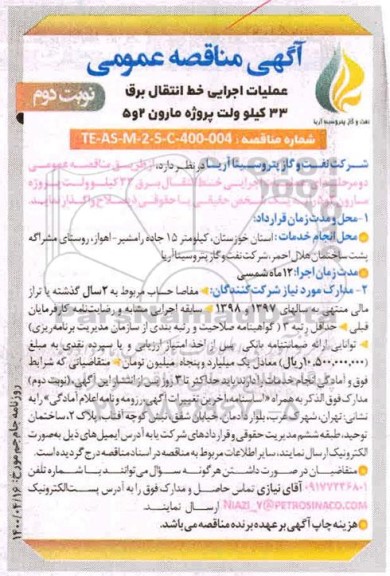 آگهی مناقصه عمومی
عملیات اجرایی خط انتقال برق
۳۳ کیلو ولت پروژه مارون ۲و۵
نوبت دوم
نفت و گاز پتروسینا آریا
شماره مناقصه : TE-AS-M-2-5-C-400-004
شرکت نفت و گاز پتروسینا آریا در نظر دارد، از طریق مناقصه عمومی
دو مرحله اجرایی خط انتقال برق ۳۳ کیلو ولت پروژه
مارون شخص حقیقی یا حقوقی ذیصلاح واگذار نماید.
۱-محل و مدت زمان قرارداد:
محل انجام خدمات : استان خوزستان، کیلومتر ۱۵ جاده رامشیر- اهواز، روستای مشراگه
پشت ساختمان هلال احمر، شرکت نفت و گاز پتروسینا آریا
مدت زمان اجرا: ۱۲ ماه شمسی
۲- مدارک مورد نیاز شرکت کنندگان: مفاصا حساب مربوط به ۲ سال گذشته یا تراز
مالی منتهی به سالهای ۱۳۹۷ و ۱۳۹۸ سابقه اجرایی مشابه و رضایت نامه کارفرمایان
قبلی حداقل رتبه ۳ ( گواهینامه صلاحیت و رتبه بندی از سازمان مدیریت برنامه ریزی)
توانایی ارائه ضمانتنامه بانکی (پس از اخذ امتیاز ارزیابی و یا سپرده نقدی به مبلغ
۱۰,۵۰۰,۰۰۰,۰۰۰ ریال) معادل یک میلیارد و پنجاه میلیون تومان متقاضیانی که شرایط
فوق و آمادگی انجام خدمات را دارند باید حداکثر تا ۳ روز پس از انتشار این آگهی (نوبت دوم)
مدارک فوق الذکر به همراه « اساسنامه، آخرین تغییرات آگهی، رزومه و نامه اعلام آمادگی» را به
نشانی: تهران، شهرک غرب، بلوار دادمان، خیابان شفق، نبش کوچه آفتاب، پلاک ۲، ساختمان
توحید، طبقه ششم مدیریت حقوقی و قراردادهای شرکت یا به آدرس ایمیل های ذیل به صورت
الکترونیک ارسال نمایند. سایر اطلاعات مربوط به مناقصه در اسناد مناقصه درج گردیده است.
متقاضیان در صورت داشتن هرگونه سؤال می توانند با شماره تلفن
۰۹۱۷۷۲۳۶۸۰۱ آقای نیازی تماس حاصل و مدارک فوق را به آدرس پست الکترونیک
NIAZI_Y@PETROSINACO.COM ارسال نمایند.
هزینه چاپ آگهی بر عهده برنده مناقصه می باشد.
روزنامه جام جم مورخ: ۱۴۰۰/۰۴/۱۶